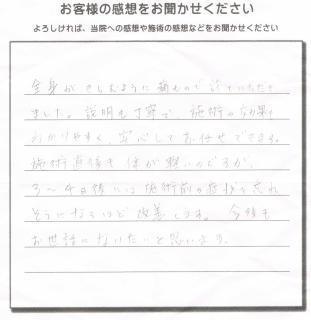 お客様の感想をお聞かせください
よろしければ、当院への感想や施術の感想などをお聞かせください
全身がきしむように痛むので診ていただき
ました。説明も丁寧で、施術の効果も
わかりやすく、安心してお任せできる。
施術直後も体が軽いのだるが、
3〜4日後には施術前の症状を忘れ
そうになるほど改善します。今後も
お世話になりたいと思います。